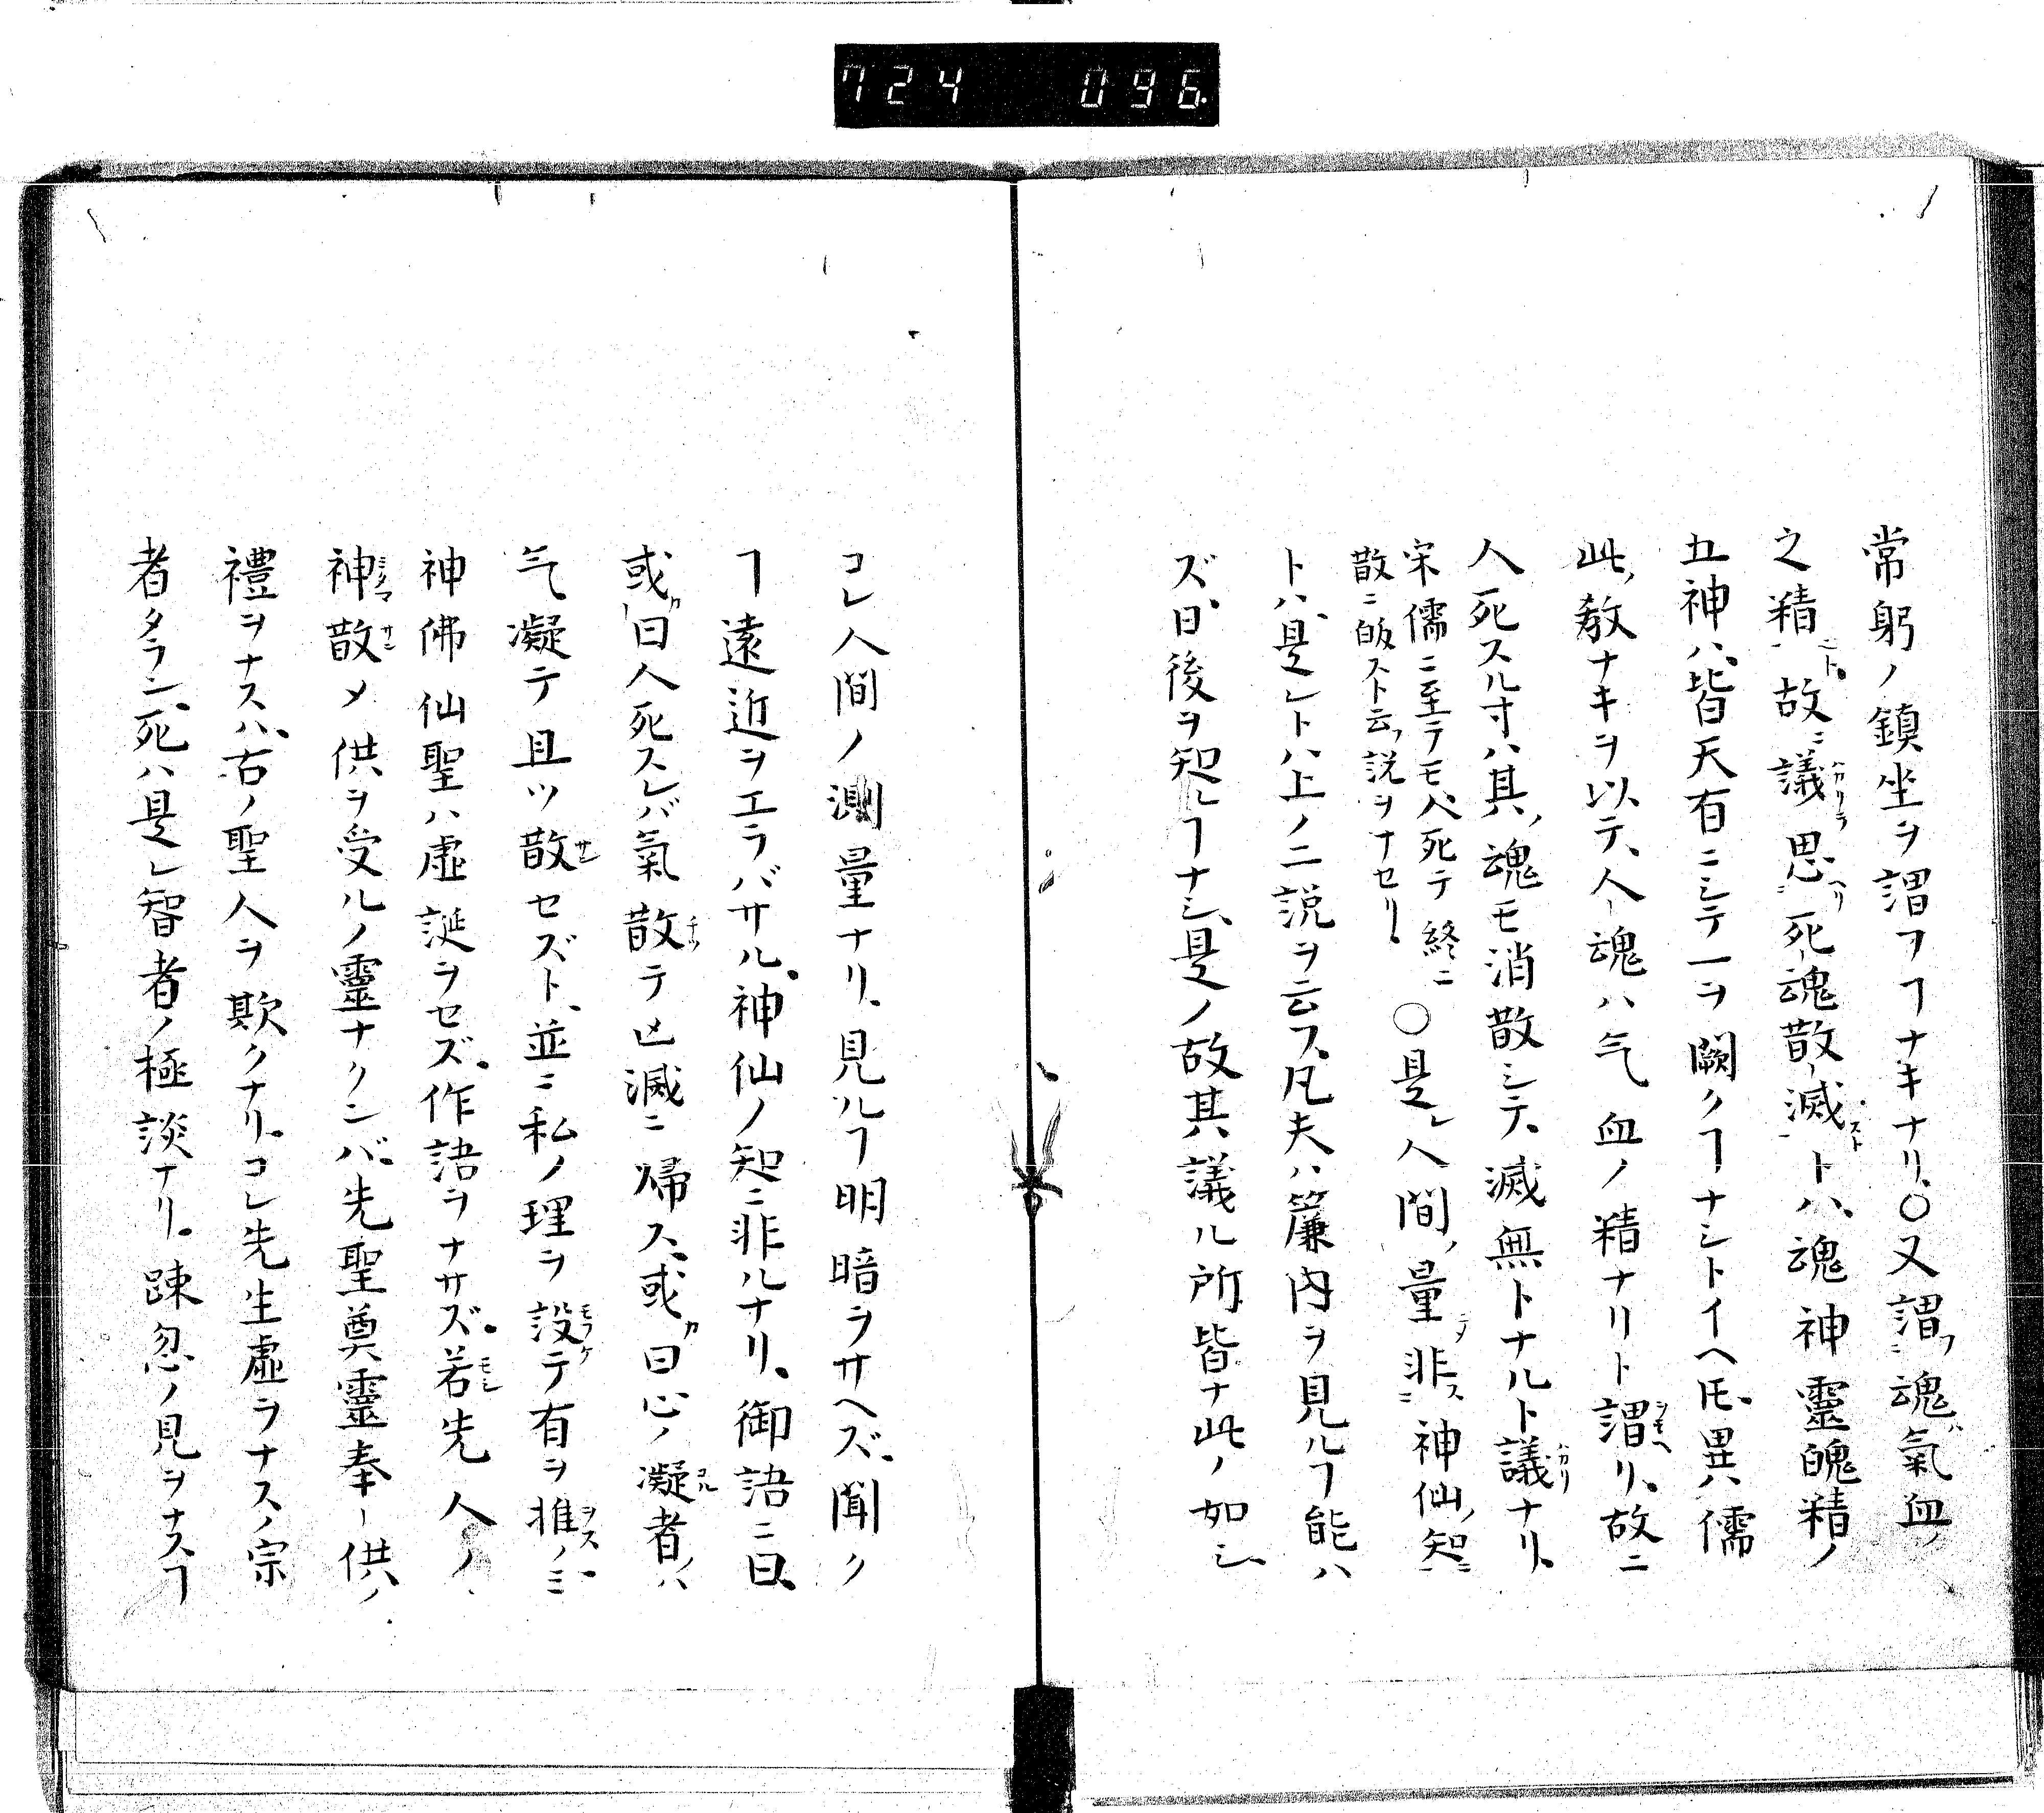 724 096
常躬ノ鎮坐ヲ謂フヿナキナリ、○又謂フニ魂ハ氣血ノ
之精ニト、故ニ議ハカリヲ思ヘリニ死ー魂散ー滅ストトハ、魂神靈魄精ノ
五神ハ、皆天有ニシテ一ヲ闕クヿナシトイヘ𪜈、異ハ儒
此ノ敎ナキヲ以テ、人ー魂ハ气血ノ精ナリト謂ヲモヘリ、故ニ
人死スル寸ハ其ノ魂モ消散シテ、滅無トナルト議ハカリナリ、
宋儒ニ至テモ、人死テ終ニ
散ニ皈スト云フ説ヲナセリ、
○是レ人間ノ量テ非スニ神仙ノ知ニ
トハ、是レトハ上ノ二説ヲ云ス、凡夫ハ簾内ヲ見ルヿ能ハ
ズ、日後ヲ知ルヿナシ、是ノ故其議ル所皆ナ此ノ如シ、
コレ人間ノ測量ナリ、見ルヿ明暗ヲサヘズ、聞ク
ヿ遠近ヲエラバサル、神仙ノ知ニ非ルナリ、御語ニ曰、
或カ曰人死スレバ氣散チツテ亡滅ニ帰ス、或カ曰心ノ凝コル者ノハ
气凝テ且ツ散サンセズト、並ニ私ノ理ヲ設モフケテ有ヲ推ヲスノミ
神佛仙聖ハ虚誕ヲセズ、作語ヲナサズ、若モシ先人ノ
神散サンメ供ヲ受ルノ靈ナクンバ、先聖奠靈奉ー供ノ
禮ヲナスハ、古ノ聖人ヲ欺クナリ、コレ先生虚ヲナスノ宗
者タラン、死ハ是レ智者ノ極談ナリ、踈忽ノ見ヲナスヿ